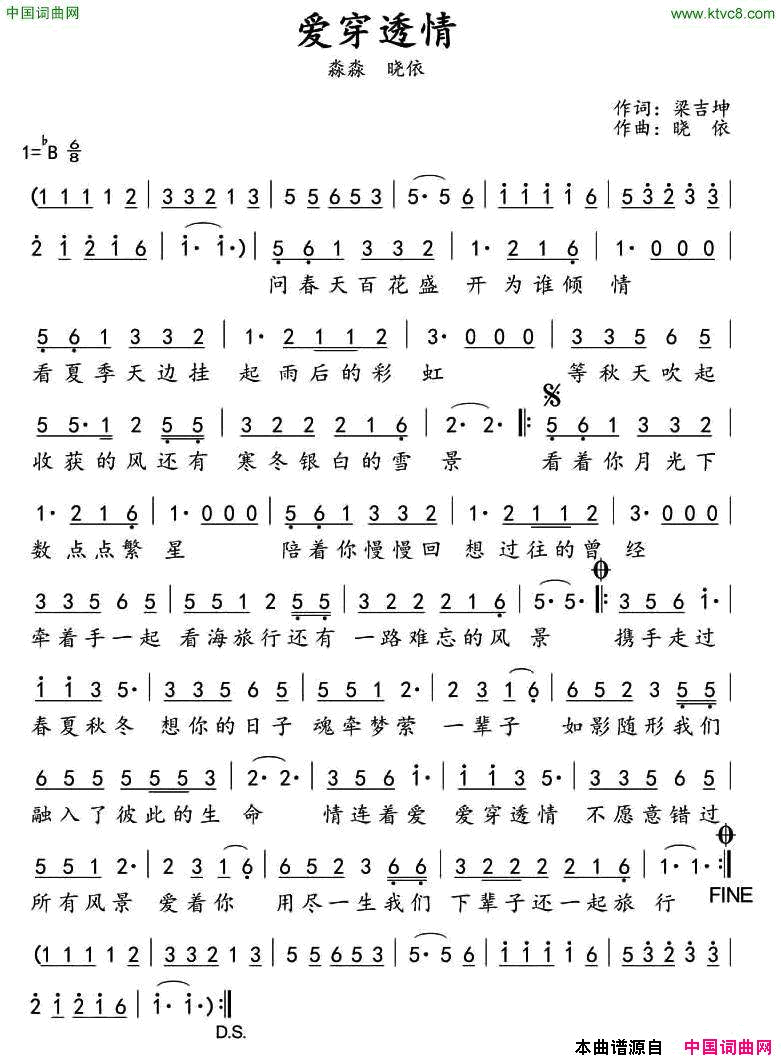 中国词曲网 www.ktvc8.com
爱穿透情
淼淼 晓依
作词：梁吉坤
作曲：晓 依
1=♭B 6/8
(1 1 1 1 2 | 3 3 2 1 3 | 5 5 6 5 3 | 5· 5 6 | i i i i i | 5 3 2 3 3 |
2 i 2 i 6 | i· i·) | 5 6 1 3 3 2 | 1· 2 1 6 | 1· 0 0 0 |
问春天百花盛 开为谁倾 情
5 6 1 3 3 2 | 1· 2 1 1 2 | 3· 0 0 0 | 3 3 5 6 5 |
看夏季天边挂 起雨后的彩 虹 等秋天吹起
5 5· 1 2 5 5 | 3 2 2 2 1 6 | 2· 2· |: 5 6 1 3 3 2 |
收获的风还有 寒冬银白的雪 景 看着你月光下
1· 2 1 6 | 1· 0 0 0 | 5 6 1 3 3 2 | 1· 2 1 1 2 | 3· 0 0 0 |
数点点繁 星 陪着你慢慢回 想过往的曾 经
3 3 5 6 5 | 5 5 1 2 5 5 | 3 2 2 2 1 6 | 5· 5· |: 3 5 6 i· |
牵着手一起 看海旅行还有 一路难忘的风 景 携手走过
i i 3 5· | 3 3 5 6 5 | 5 5 1 2· | 2 3 1 6 | 6 5 2 3 5 5 |
春夏秋冬 想你的日子 魂牵梦萦 一辈子 如影随形我们
6 5 5 5 5 5 3 | 2· 2· | 3 5 6 i· | i i 3 5· | 3 3 5 6 5 |
融入了彼此的生 命 情连着爱 爱穿透情 不愿意错过
5 5 1 2· | 2 3 1 6 | 6 5 2 3 6 6 | 3 2 2 2 2 1 6 | 1· 1· :|
所有风景 爱着你 用尽一生我们 下辈子还一起旅 行 FINE
(1 1 1 1 2 | 3 3 2 1 3 | 5 5 6 5 3 | 5· 5 6 | i i i i i | 5 3 2 3 3 |
2 i 2 i 6 | i· i·) :|
D.S.
本曲谱源自 中国词曲网